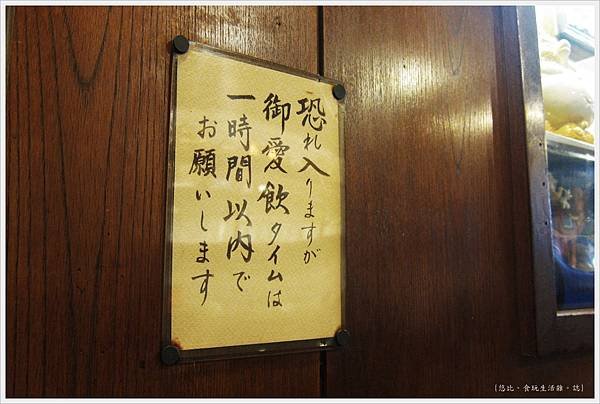 恐れ入りますが
御愛飲タイムは
一時間以内で
お願いします
[悠比、食玩生活雜。誌]